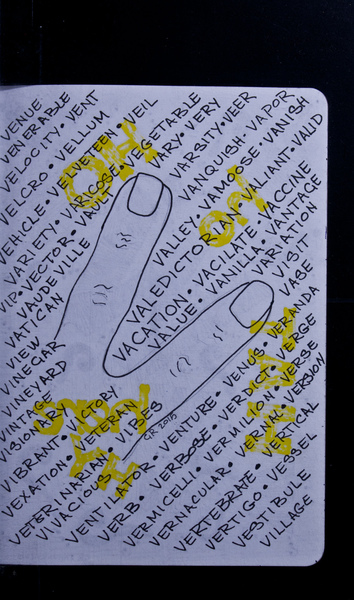 VENUE
VENERABLE
VELOCITY • VENT
VELCRO • VELLUM
VEHICLE • VELVETEEN • VEIL
VARIETY • VARICOSE • VEGETABLE
VIP • VECTOR • VARY • VERY
VAUDEVILLE VARSITY • VEER
VATICAN VANQUISH • VAPOR
VIEW VALLEY • VAMOOSE • VANISH
VINEGAR VALEDICTORIAN • VALIANT • VALID
VINEYARD VACATION • VACILATE • VACCINE
VINTAGE VALUE • VANILLA • VANTAGE
VISIONARY VARIATION
VIBRANT • VICTORY VISIT
VEXATION • VETERAN VASE
VETERINARIAN • VIBES VENUS • VERANDA
VIVACIOUS GR 2015 VENTURE • VERDICT • VERGE
VENTILATOR • VERBOSE • VERMILION • VERSE
VERB • VERNAL • VERSION
VERMICELLI • VERTICAL
VERNACULAR • VESSEL
VERTEBRATE •
VERTIGO • VESTIBULE
VILLAGE